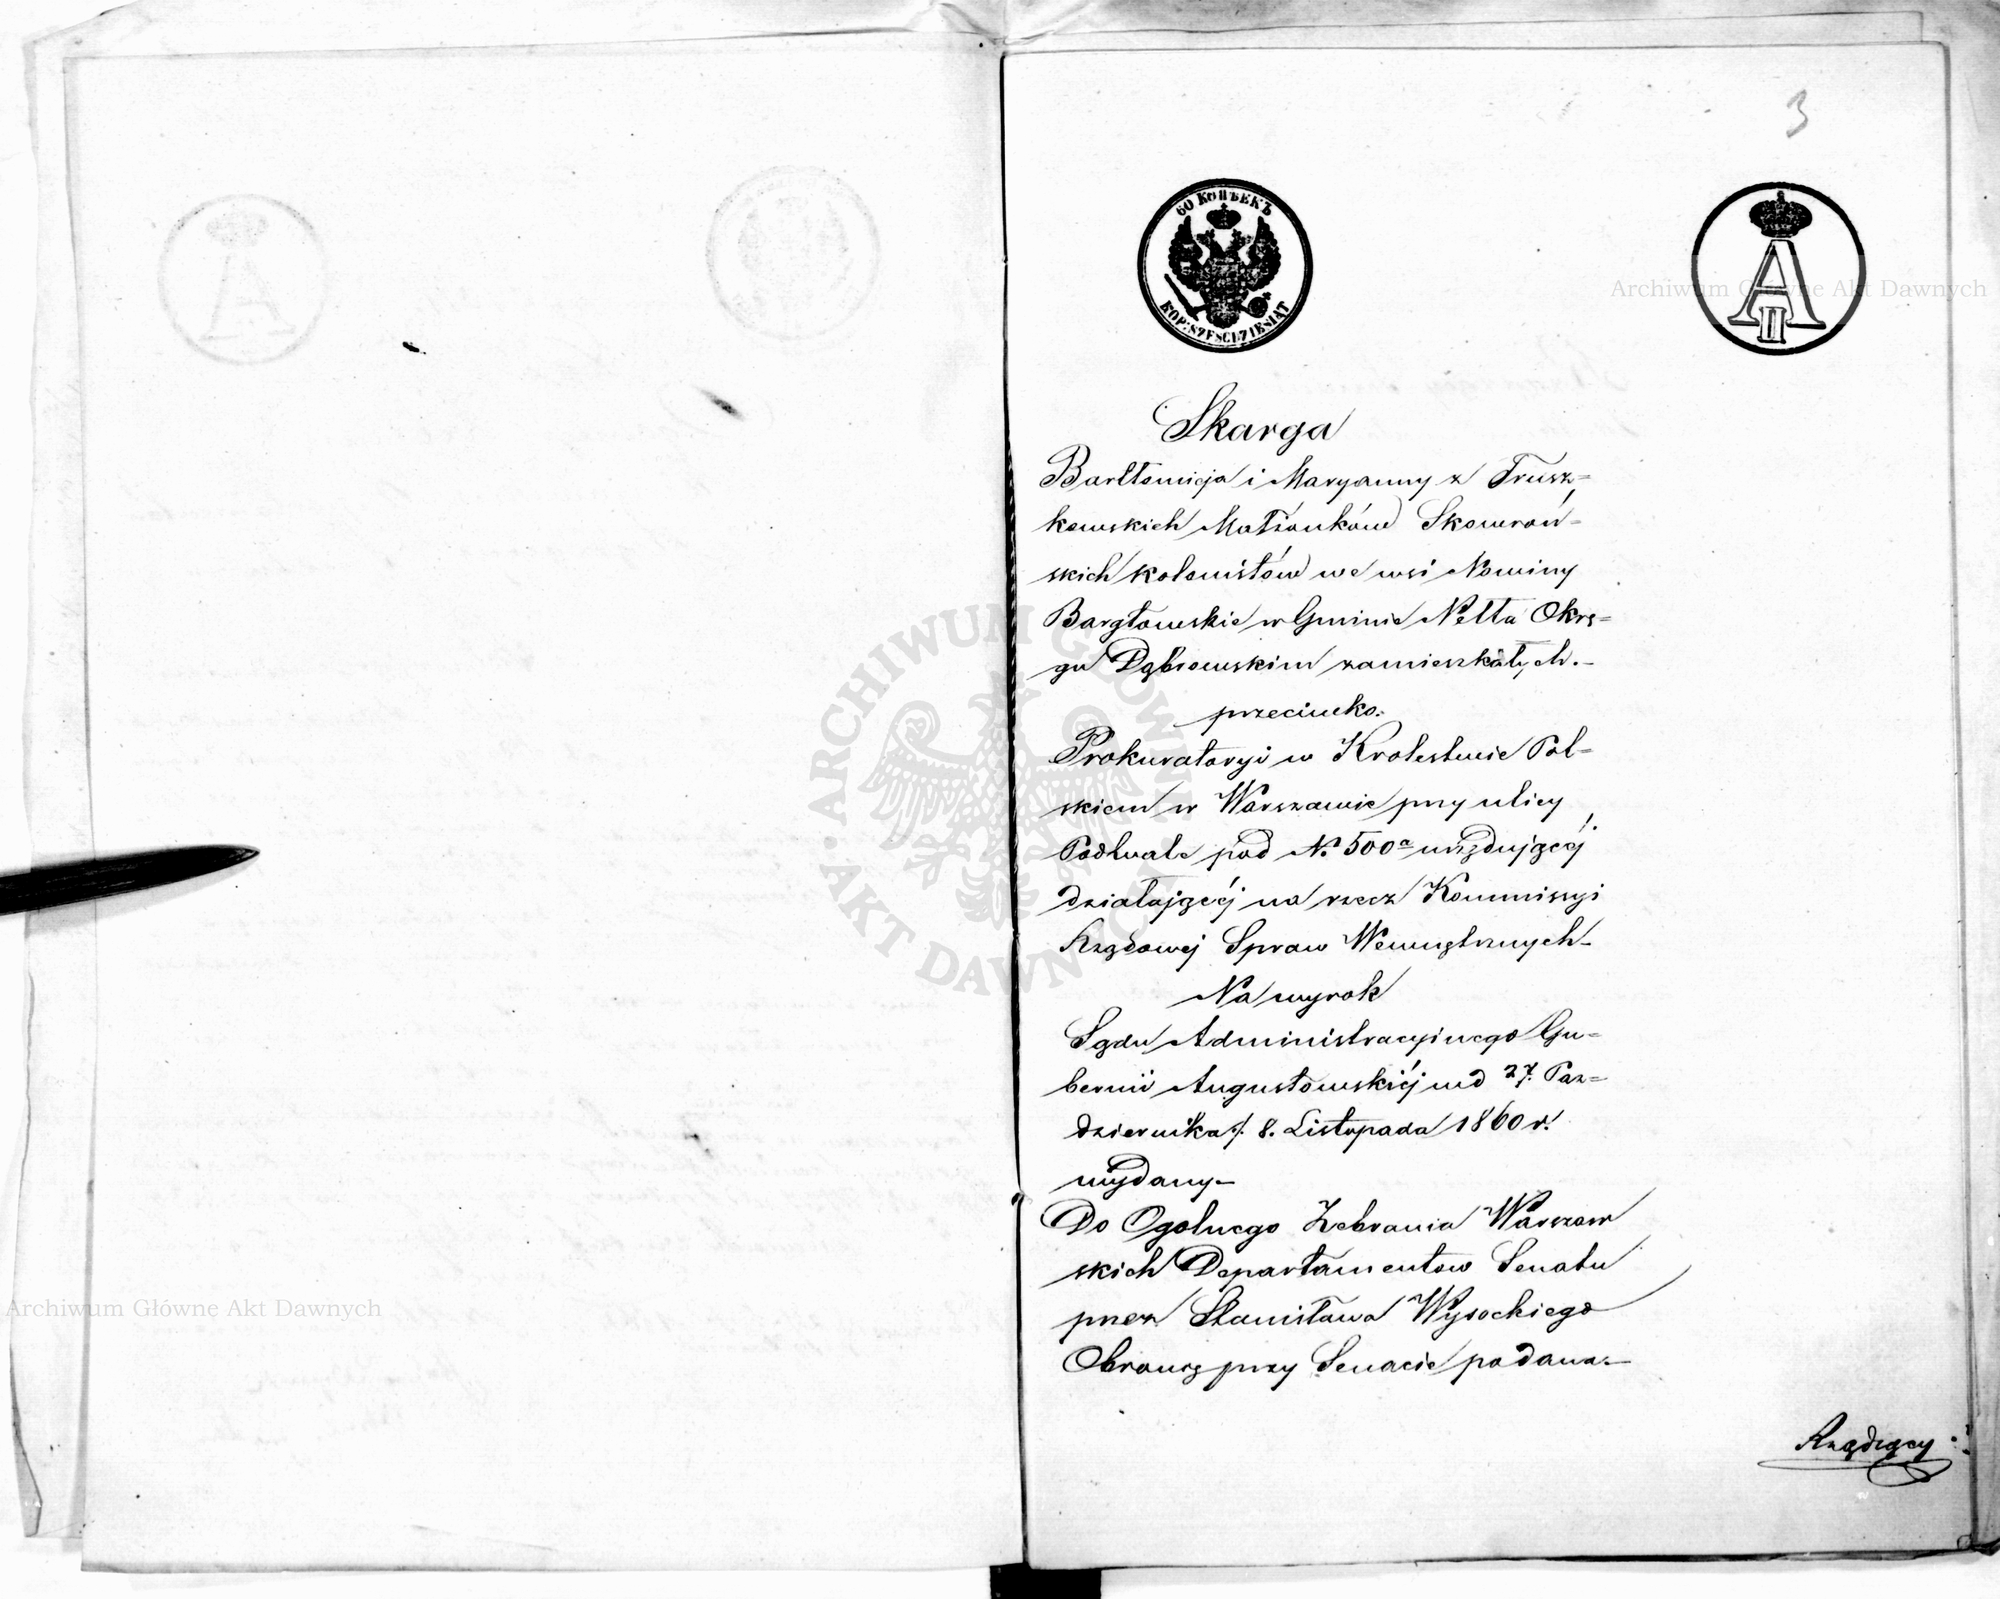 3
60 КОПѢЕКЪ
KOP: SZEŚĆDZIESIĄT
A II
Archiwum Główne Akt Dawnych
Skarga
Bartłomieja i Maryanny z Trusz=
kowskich Małżonków Skowroń=
skich kolonistów we wsi Nowiny
Bargłowskie w Gminie Netta Okrę=
gu Dąbrowskim zamieszkałych.–
przeciwko:
Prokuratoryi w Krolestwie Pol=
skiem w Warszawie przy ulicy
Podwale pod No 500a urzędującéj
działającéj na rzecz Kommissyi
Rządowej Spraw Wewnętrznych–
Na wyrok
Sądu Administracyinego Gu=
bernii Augustowskiéj w d 27. Paz=
dziernika/. 8. Listopada 1860 r.
wydany–
Do Ogolnego Zebrania Warszaw
skich Departamentow Senatu
przez Stanisława Wysockiego
Obrońcę przy Senacie podana.–
Rządzący
ARCHIWUM GŁÓWNE AKT DAWNYCH
Archiwum Główne Akt Dawnych